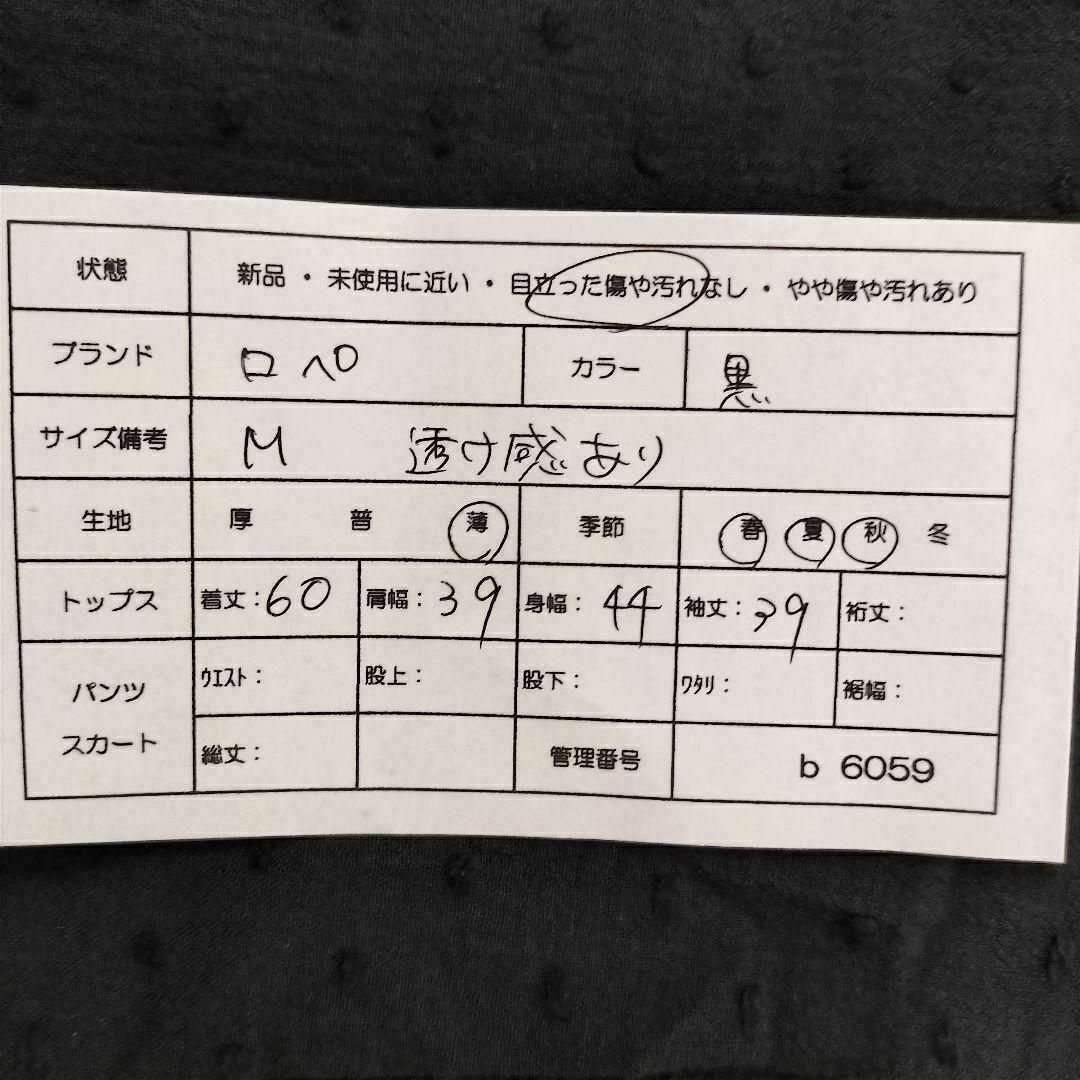 状態 新品 ・ 未使用に近い ・ 目立った傷や汚れなし ・ やや傷や汚れあり
ブランド ロペ カラー 黒
サイズ備考 M 透け感あり
生地 厚 普 薄 季節 春 夏 秋 冬
トップス 着丈：60 肩幅：39 身幅：44 袖丈：39 裄丈：
パンツ スカート ウエスト： 股上： 股下： ワタリ： 裾幅：
総丈： 管理番号 b 6059